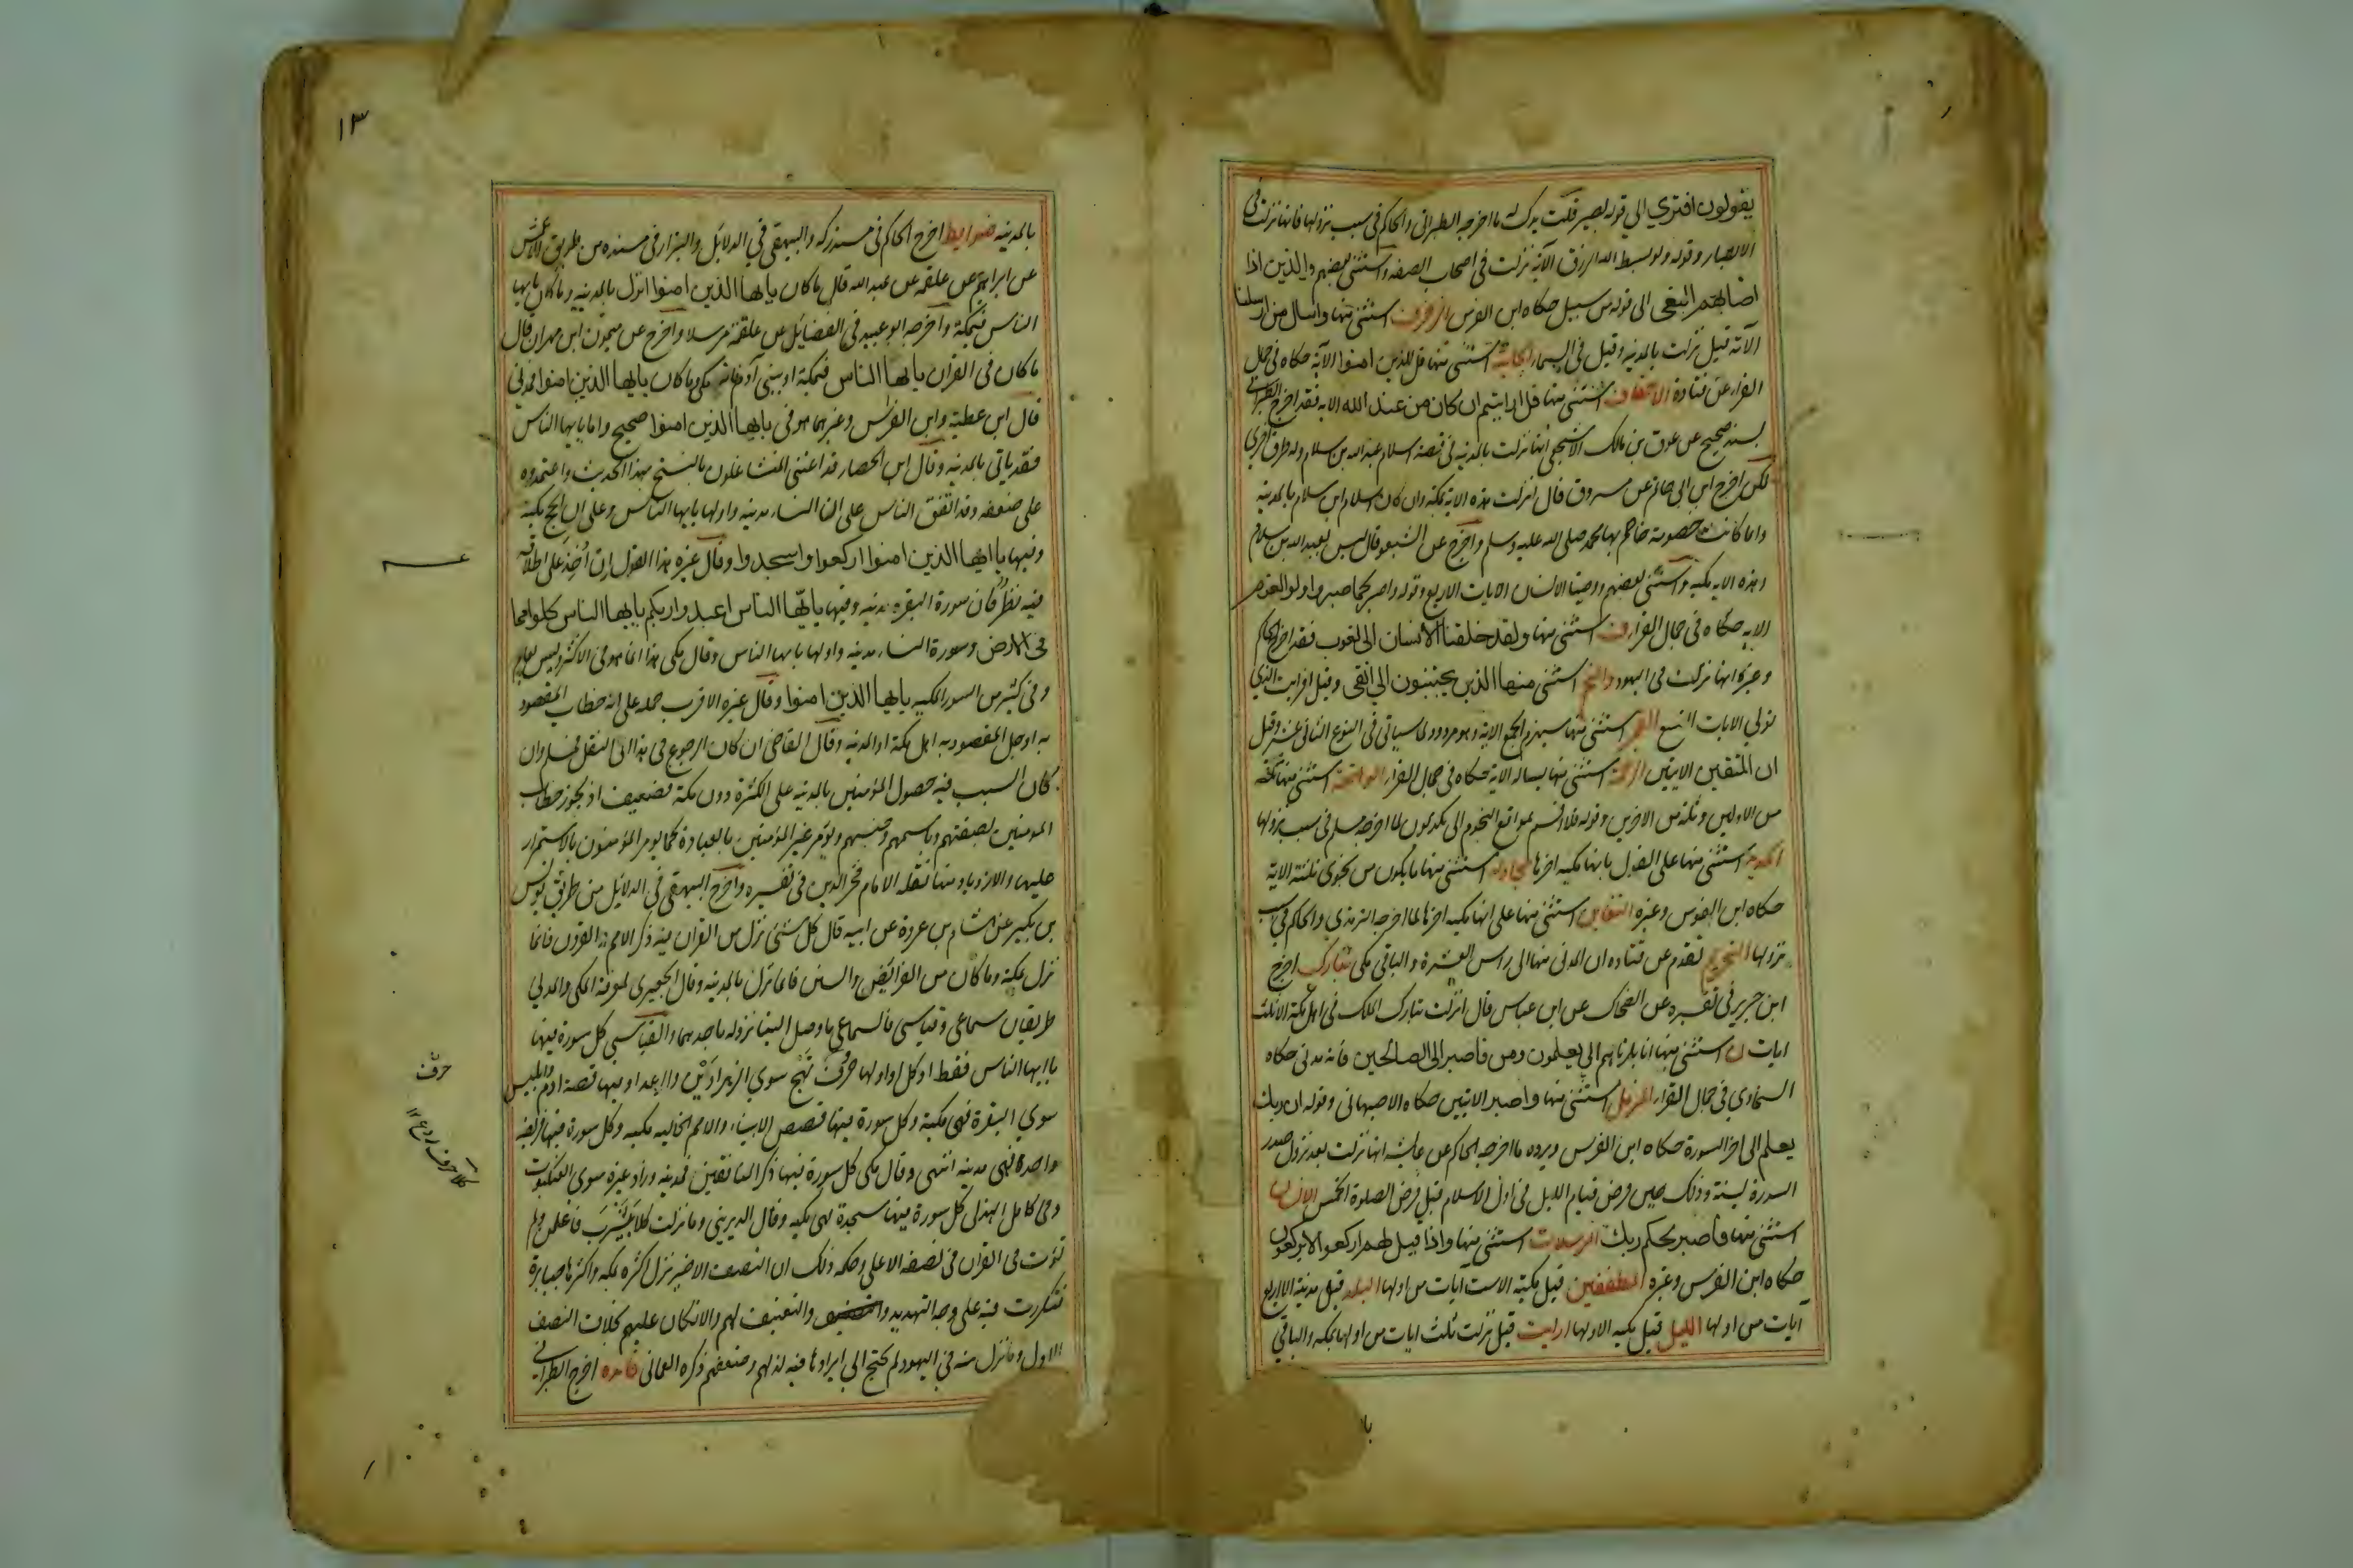 يقولون افتري الي قوله بصير قلت يدل له ما اخرجه الطبراني والحاكم في سبب نزولها فانها نزلت في
الانصار وقوله ولو بسط الله الرزق الآية نزلت في اصحاب الصفه واستثنى بعضهم والذين اذا
اصابهم البغي الى قوله من سبيل حكاه ابن الفرس الزخرف استثنى منها واسال من ارسلنا
الآية قيل نزلت بالمدينه وقيل في السماء الجاثية استثنى منها قل للذين امنوا الآية حكاه في جمال
القراء عن قتادة الاحقاف استثنى منها قل ارايتم ان كان من عند الله الايه فقد اخرج الطبراني
بسند صحيح عن عوف بن مالك الاشجعي انها نزلت بالمدينه في قصة اسلام عبد الله بن سلام وله طرق اخرى
لكن اخرج ابن ابي حاتم عن مسروق قال انزلت هذه الاية بمكة وان كان اسلام ابن سلام بالمدينه
وانما كانت خصومة خاصم بها محمد صلى الله عليه وسلم واخرج عن الشعبي قال ليس بعبد الله بن سلام
وهذه الايه مكيه واستثنى بعضهم ووصينا الانسان الايات الاربع وقوله فاصبر كما صبر اولوا العزم
الايه حكاه في جمال القراء ق استثنى منها ولقد خلقنا الانسان الى لغوب فقد اخرج الحاكم
وغيره انها نزلت في اليهود والنجم استثنى منها الذين يجتنبون الي اتقى وقيل افرايت الذي
تولي الايات التسع القمر استثنى منها سيهزم الجمع الاية وهو مردود لما سياتي في النوع الثاني عشر وقيل
ان المتقين الايتين الرحمن استثنى منها يساله الاية حكاه في جمال القراء الواقعة استثنى منها ثلة
من الاولين وثلة من الاخرين وقوله فلا اقسم بمواقع النجوم الى تكذبون لما اخرجه مسلم في سبب نزولها
الحديد استثنى منها على القول بانها مكيه اخرها المجادله استثنى منها ما يكون من نجوى ثلثة الاية
حكاه ابن الفرس وغيره التغابن استثنى منها على انها مكيه اخرها لما اخرجه الترمذي والحاكم في سبب
نزولها التحريم تقدم عن قتاده ان المدني منها الى راس العشرة والباقي مكي تبارك اخرج
ابن جرير في تفسيره عن الضحاك عن ابن عباس قال انزلت تبارك الملك في اهل مكة الا ثلث
ايات ن استثنى منها انا بلوناهم الي يعلمون ومن فاصبر الى الصالحين فانه مدني حكاه
السخاوي في جمال القراء المزمل استثنى منها واصبر الايتين حكاه الاصبهاني وقوله ان ربك
يعلم الى اخر السورة حكاه ابن الفرس ويرده ما اخرجه الحاكم عن عايشه انها نزلت بعد نزول صدر
السورة بسنة وذلك حين فرض قيام الليل في اول الاسلام قبل فرض الصلوة الخمس الانسان
استثنى منها فاصبر لحكم ربك المرسلات استثنى منها واذا قيل لهم اركعوا لا يركعون
حكاه ابن الفرس وغيره المطففين قيل مكية الا ست آيات من اولها البلد قيل مدنية الا اربع
آيات من اولها الليل قيل مكيه الا اولها ارايت قيل نزلت ثلث ايات من اولها بمكه والباقي
با
١٣
بالمدينه ضوابط اخرج الحاكم في مستدركه والبيهقي في الدلائل والبزار في مسنده من طريق الاعمش
عن ابراهيم عن علقمه عن عبد الله قال ما كان يا ايها الذين امنوا انزل بالمدينه وما كان يا ايها
الناس فبمكة واخرجه ابو عبيد في الفضايل عن علقمة مرسلا واخرج عن ميمون ابن مهران قال
ما كان في القران يا ايها الناس فبمكة او بني آدم فانه مكي وما كان يا ايها الذين امنوا فمدني
قال ابن عطية وابن الفرس وغيرهما هو في يا ايها الذين امنوا صحيح واما يا ايها الناس
فقد ياتي بالمدينه وقال ابن الحصار قد اعتنى المتشاغلون بالنسخ بهذا الحديث واعتمدوه
على ضعفه وقد اتفق الناس على ان النساء مدنيه واولها يا ايها الناس وعلى ان الحج مكية
وفيها يا ايها الذين امنوا اركعوا واسجدوا وقال غيره هذا القول ان اُخِذَ على اطلاقه
فيه نظر فان سورة البقره مدنيه وفيها يا ايها الناس اعبدوا ربكم يا ايها الناس كلوا مما
في الارض وسورة النساء مدنيه واولها يا ايها الناس وقال مكي هذا انما هو في الاكثر وليس بعام
وفي كثير من السور المكيه يا ايها الذين امنوا وقال غيره الاقرب حمله على انه خطاب المقصود
به او جل المقصود به اهل مكة او المدينه وقال القاضي ان كان الرجوع في هذا الى النقل فمسلم وان
كان السبب فيه حصول المؤمنين بالمدينه على الكثرة دون مكة فضعيف اذ يجوز خطاب
المومنين بصفتهم وباسمهم وجنسهم ويؤمر غير المؤمنين بالعبادة كما يومر المؤمنون بالاستمرار
عليها والازدياد منها نقله الامام فخر الدين في تفسيره واخرج البيهقي في الدلائل من طريق يونس
بن بكير عن هشام بن عروة عن ابيه قال كل شئ نزل من القران فيه ذكر الامم والقرون فانما
نزل بمكة وما كان من الفرائض والسنن فانما نزل بالمدينه وقال الجعبري لمعرفة المكي والمدني
طريقان سماعي وقياسي فالسماعي ما وصل الينا نزوله باحدهما والقياسي كل سورة فيها
يا ايها الناس فقط او كلا او اولها حرف تهج سوي الزهراوَيْن والرعد او فيها قصة ادم وابليس
سوي البقرة فهي مكية وكل سورة فيها قصص الانبياء والامم الخاليه مكيه وكل سورة فيها فريضه
واحدة فهي مدنيه انتهى وقال مكي كل سورة فيها ذكر المنافقين فمدنيه وزاد غيره سوى العنكبوت
وفي كامل الهذلي كل سورة فيها سجدة فهي مكيه وقال الديريني وما نزلت كلا بيثرب فاعلمن ولم
تؤت في القران في نصفه الاعلى وحكمه ذلك ان النصف الاخير نزل اكثره بمكه واكثرها جبابرة
فتكررت فيه على وجه التهديد والتعنيف لهم والانكار عليهم بخلاف النصف
الاول وما نزل منه في اليهود لم يحتج الي ايرادها فيه لذلهم وضعفهم ذكره العماني فائده اخرج الطبراني
حرف